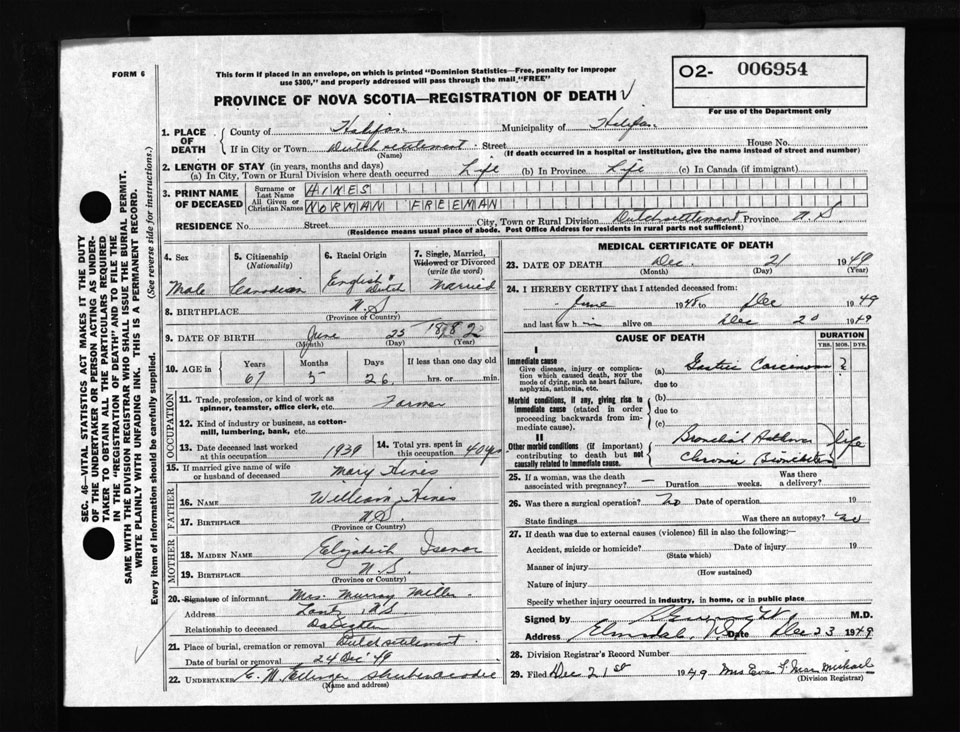 FORM 6
This form if placed in an envelope, on which is printed "Dominion Statistics—Free, penalty for improper
use $300," and properly addressed will pass through the mail "FREE"
O2- 006954
For use of the Department only
PROVINCE OF NOVA SCOTIA—REGISTRATION OF DEATH
1. PLACE OF DEATH
County of Halifax Municipality of Halifax
If in City or Town Dutch settlement Street House No.
(Name) (If death occurred in a hospital or institution, give the name instead of street and number)
2. LENGTH OF STAY (in years, months and days)
(a) In City, Town or Rural Division where death occurred Life (b) In Province Life (c) In Canada (if immigrant)
3. PRINT NAME OF DECEASED
Surname or Last Name HINES
All Given or Christian Names NORMAN FREEMAN
RESIDENCE No. Street City, Town or Rural Division Dutch settlement Province N.S.
(Residence means usual place of abode. Post Office Address for residents in rural parts not sufficient)
4. Sex Male
5. Citizenship (Nationality) Canadian
6. Racial Origin English Dutch
7. Single, Married, Widowed or Divorced (write the word) Married
8. BIRTHPLACE N.S.
(Province or Country)
9. DATE OF BIRTH June 25 1882
(Month) (Day) (Year)
10. AGE in Years Months Days If less than one day old
67 5 26 hrs. or min.
OCCUPATION
11. Trade, profession, or kind of work as
spinner, teamster, office clerk, etc. Farmer
12. Kind of industry or business, as cotton-
mill, lumbering, bank, etc.
13. Date deceased last worked at this occupation 1939
14. Total yrs. spent in this occupation 40 yrs
15. If married give name of wife
or husband of deceased Mary Hines
FATHER
16. NAME William Hines
17. BIRTHPLACE N.S.
(Province or Country)
MOTHER
18. MAIDEN NAME Elizabeth Isenor
19. BIRTHPLACE N.S.
(Province or Country)
20. Signature of informant Mrs. Murray Miller
Address Lantz, N.S.
Relationship to deceased Daughter
21. Place of burial, cremation or removal Dutch settlement
Date of burial or removal 24 Dec '49
22. UNDERTAKER E. M. Ettinger Shubenacadie
(Name and address)
MEDICAL CERTIFICATE OF DEATH
23. DATE OF DEATH Dec. 21 1949
(Month) (Day) (Year)
24. I HEREBY CERTIFY that I attended deceased from:
June 1948 to Dec 1949
and last saw h im alive on Dec 20 1949
CAUSE OF DEATH
DURATION
YRS. MOS. DYS.
I
Immediate cause
Give disease, injury or complica-
tion which caused death, NOT the
mode of dying, such as heart failure,
asphyxia, asthenia, etc.
(a) Gastric Carcinoma ?
due to
Morbid conditions, if any, giving rise to
immediate cause (stated in order
proceeding backwards from im-
mediate cause).
(b)
due to
(c)
II
Other morbid conditions (if important)
contributing to death but not
causally related to immediate cause.
Bronchial Asthma
Chronic Bronchitis life
25. If a woman, was the death
associated with pregnancy? — Duration weeks. Was there a delivery?
26. Was there a surgical operation? no Date of operation 19
State findings Was there an autopsy? no
27. If death was due to external causes (violence) fill in also the following:—
Accident, suicide or homicide? Date of injury 19
(State which)
Manner of injury
(How sustained)
Nature of injury
Specify whether injury occurred in industry, in home, or in public place
Signed by M.D.
Address Elmsdale, N.S. Date Dec 23 1949
28. Division Registrar's Record Number
29. Filed Dec 21st 1949 Mrs Eva
(Division Registrar)
SEC. 46—VITAL STATISTICS ACT MAKES IT THE DUTY
OF THE UNDERTAKER OR PERSON ACTING AS UNDER-
TAKER TO OBTAIN ALL THE PARTICULARS REQUIRED
IN THE "REGISTRATION OF DEATH" AND TO FILE THE
SAME WITH THE DIVISION REGISTRAR WHO SHALL ISSUE THE BURIAL PERMIT.
WRITE PLAINLY WITH UNFADING INK. THIS IS A PERMANENT RECORD.
Every item of information should be carefully supplied. (See reverse side for instructions.)